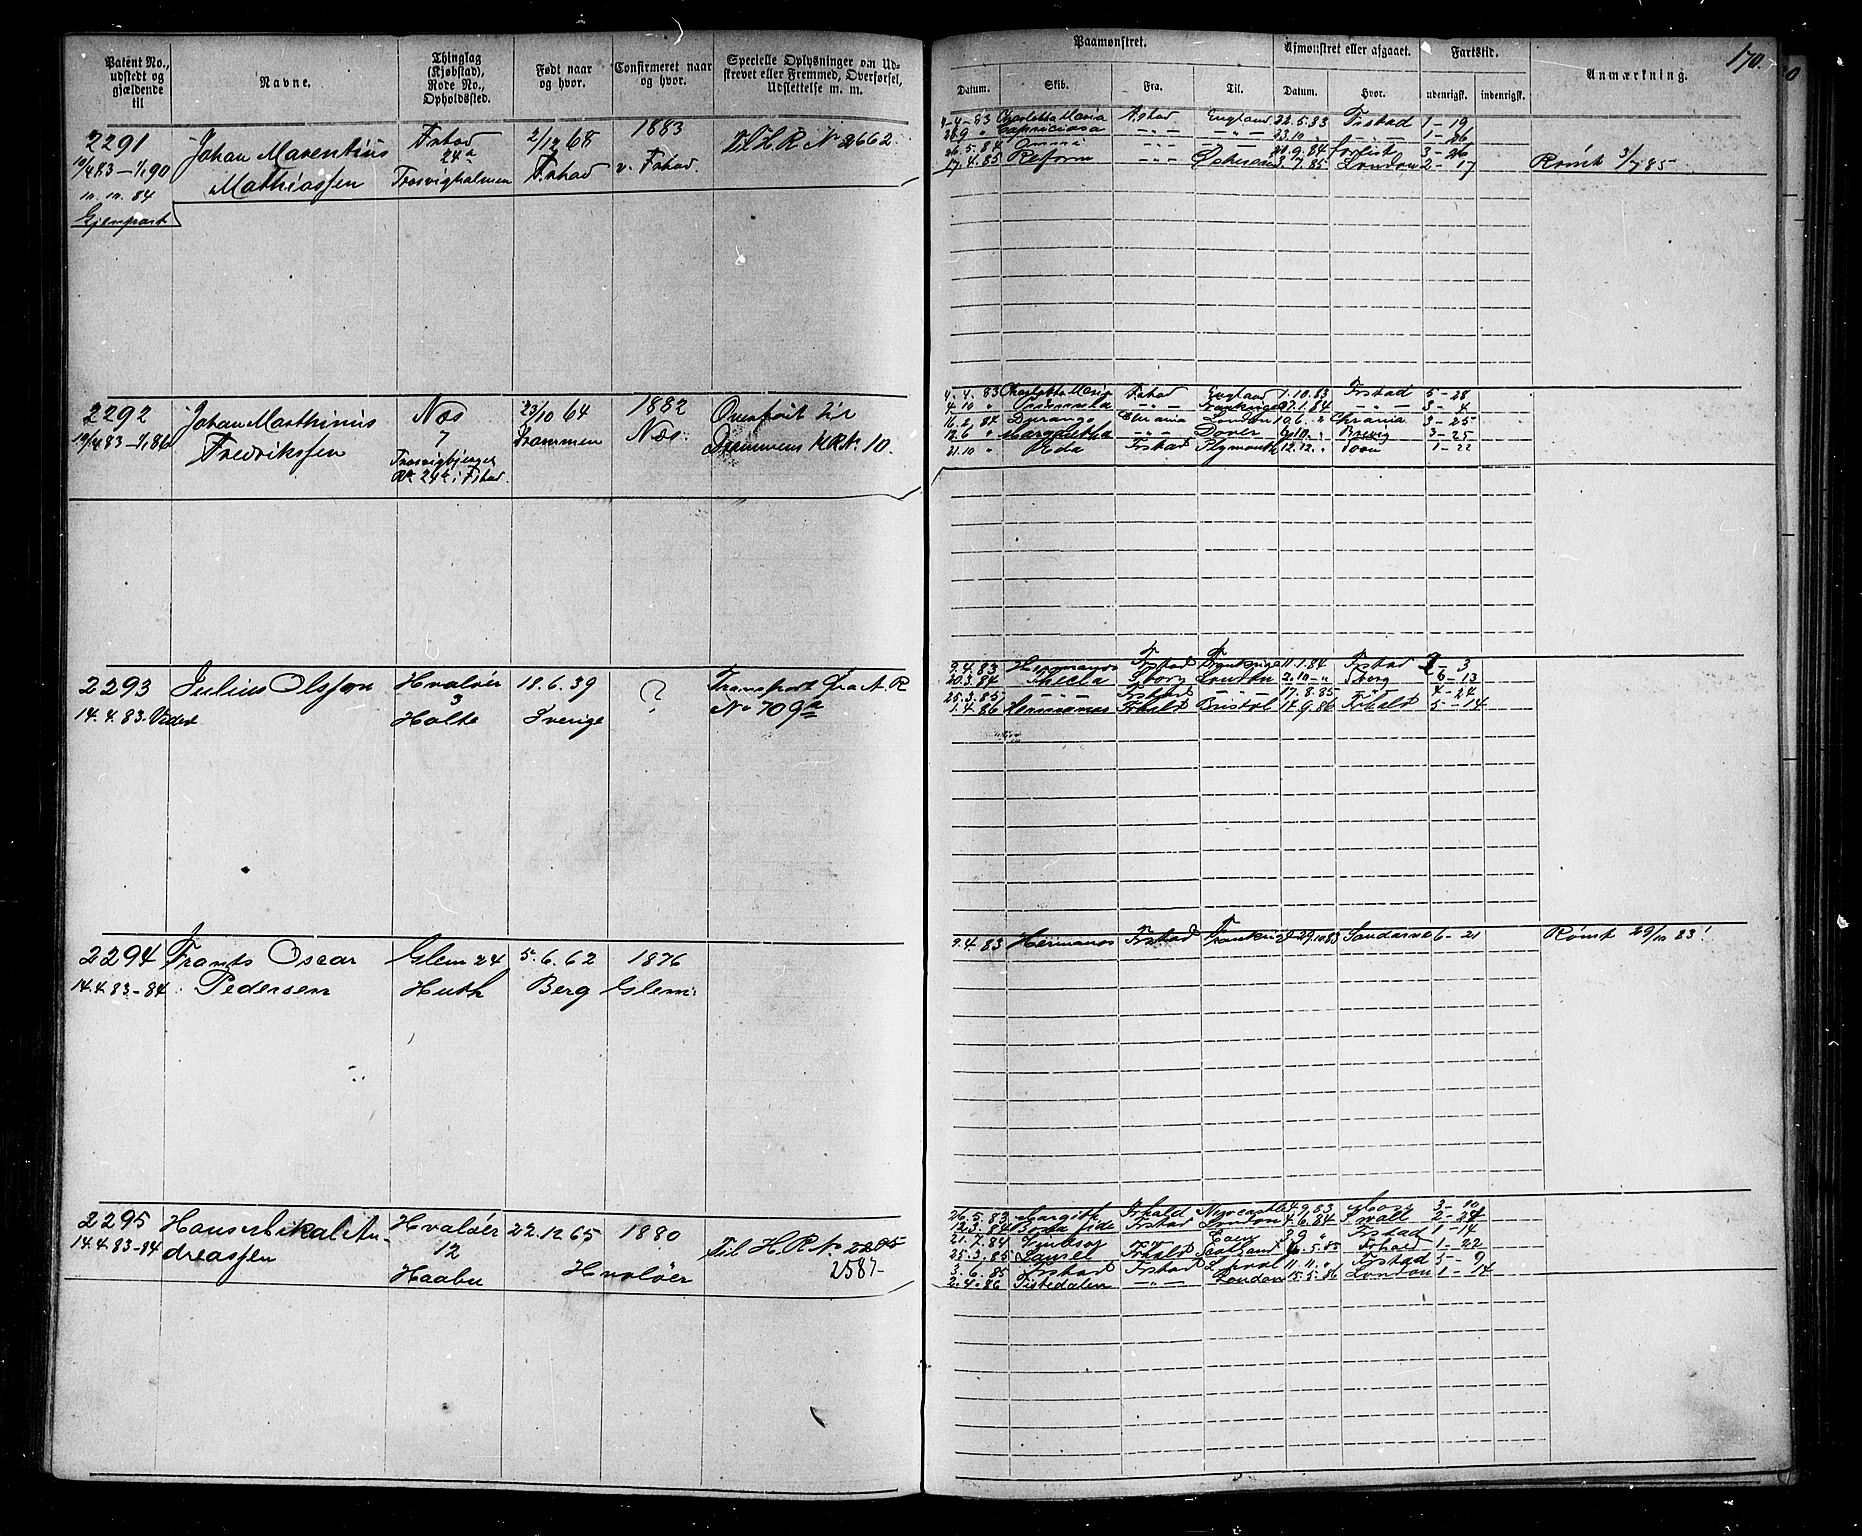 170.
Patent No., udstedt og gjældende til
Navne.
Thinglag (Kjøbstad), Rode No., Opholdssted.
Født naar og hvor.
Confirmeret naar og hvor.
Specielle Oplysninger om Udskrevet eller Fremmed, Overførsel, Udslettelse m. m.
Paamønstret.
Afmønstret eller afgaaet.
Fartstid.
Anmærkning.
Datum. Skib. Fra. Til. Datum. Hvor. udenrigsk. indenrigsk.
2291 Johan Marentius Fstad 2/12 68 1883 Til H R No 2662
10/4 83 – 1/1 90 Mathiassen 24a Fstad v. Fstad.
m. m. 84 Trosvigholmen
Gjenpart
4-4-83 Charlotta Maria Fstad England 22.5.83 Frstad 1-19
28.9 " Capriciosa -"- -"- 23.10 " 1-26
26.5.84 21.9.84 forlist 3-26
17.4.85 Reform -"- 3.7.85 London 2-17 Rømt 3/7 85
2292 Johan Marthinus Næs 23/10 64 1882 Overført til
10/4 83 – 1/1 86 Fredrikssen 7 Drammen Næs. Drammens 10.
Trosvigbjerget
24a i Fstad.
4.4.83 Charlotta Maria Fstad England 1.10.83 Frstad 5-28
4.10 " -"- Frankrige 1.84 -"- 3-4
16.2.84 Durango Chrania London 10.6. " Chrania 3-25
12.6 " Margretha -"- Dover 6.10. " Brevig 3-25
21.10 " Ida Frstad Plymouth 12.12. " 1-22
2293 Julius Olsson Hvaløer 18.6.39 ? Transport fra A. R
14.4.83. Holte 3 Sverige No 709a
9.4.83 Hermanos Frstad Frankrige 11.1.84 Frstad 9-3
20.3.84 Thecla Sborg London 2.10 " Sberg 6-13
25.3.85 -"- Frstad -"- 17.8.85 -"- 4-24
1.4.86 Hermanos Frhald Bristol 14.9.86 Frhald 5-14
2294 Frants Oscar Glem 24 5.6.62 1876
14.4.83-84. Pedersen Huth Berg Glem.
9.4.83 Hermanos Frstad Frankrige 29.10 83 Sandarne 6-21 Rømt 29/10 83!
2295 Hans Mikal An- Hvaløer 22.12 65 1880 Til H. R No 2205
14.4.83-84 dreassen 12 Hvaløer 2587-
Haabu
26.5.83 Margith Frhald Newcastle 4.9.83 3-10
12.3.84 Frstad London 4.6.84 2-24
21.7.84 9 " Frstad 1-14
25.3.85 Frhald Scotland 16.5.85 Frhald 1-22
3.6.85 Frstad Frstad 11.11. " Frstad 5-9
2.4.86 Tistedalen -"- London 15.5.86 London 1-14